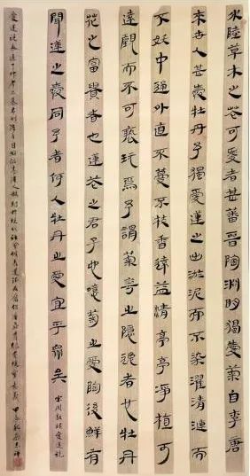 水陸草木之花可愛者甚蕃晉陶淵明獨愛菊自李唐
來世人甚愛牡丹予獨愛蓮之出淤泥而不染濯清漣而
不妖中通外直不蔓不枝香遠益清亭亭淨植可
遠觀而不可褻玩焉予謂菊花之隱逸者也牡丹
花之富貴者也蓮花之君子者也噫菊之愛陶後鮮有
聞蓮之愛同予者何人牡丹之愛宜乎眾矣
宋周敦頤愛蓮說